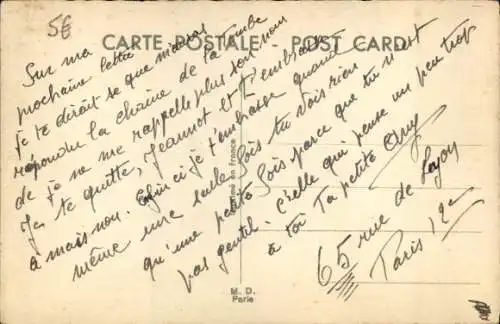 5€
CARTE POSTALE - POST CARD
Sur ma
prochaine lettre
je te dirait se que m'auras
répondu la chaîne de la tombe
de je ne me rappelle plus son nom
Je te quitte, Jeannot et t'embrasse
à mais non. Enfin ici je t'embrasse quand
même une seule fois tu vois rien
qu'une petite fois parce que tu n'est
pas gentil. Celle qui pense un peu trop
à toi Ta petite
65 rue de
Paris 12e
en France
M. D.
Paris